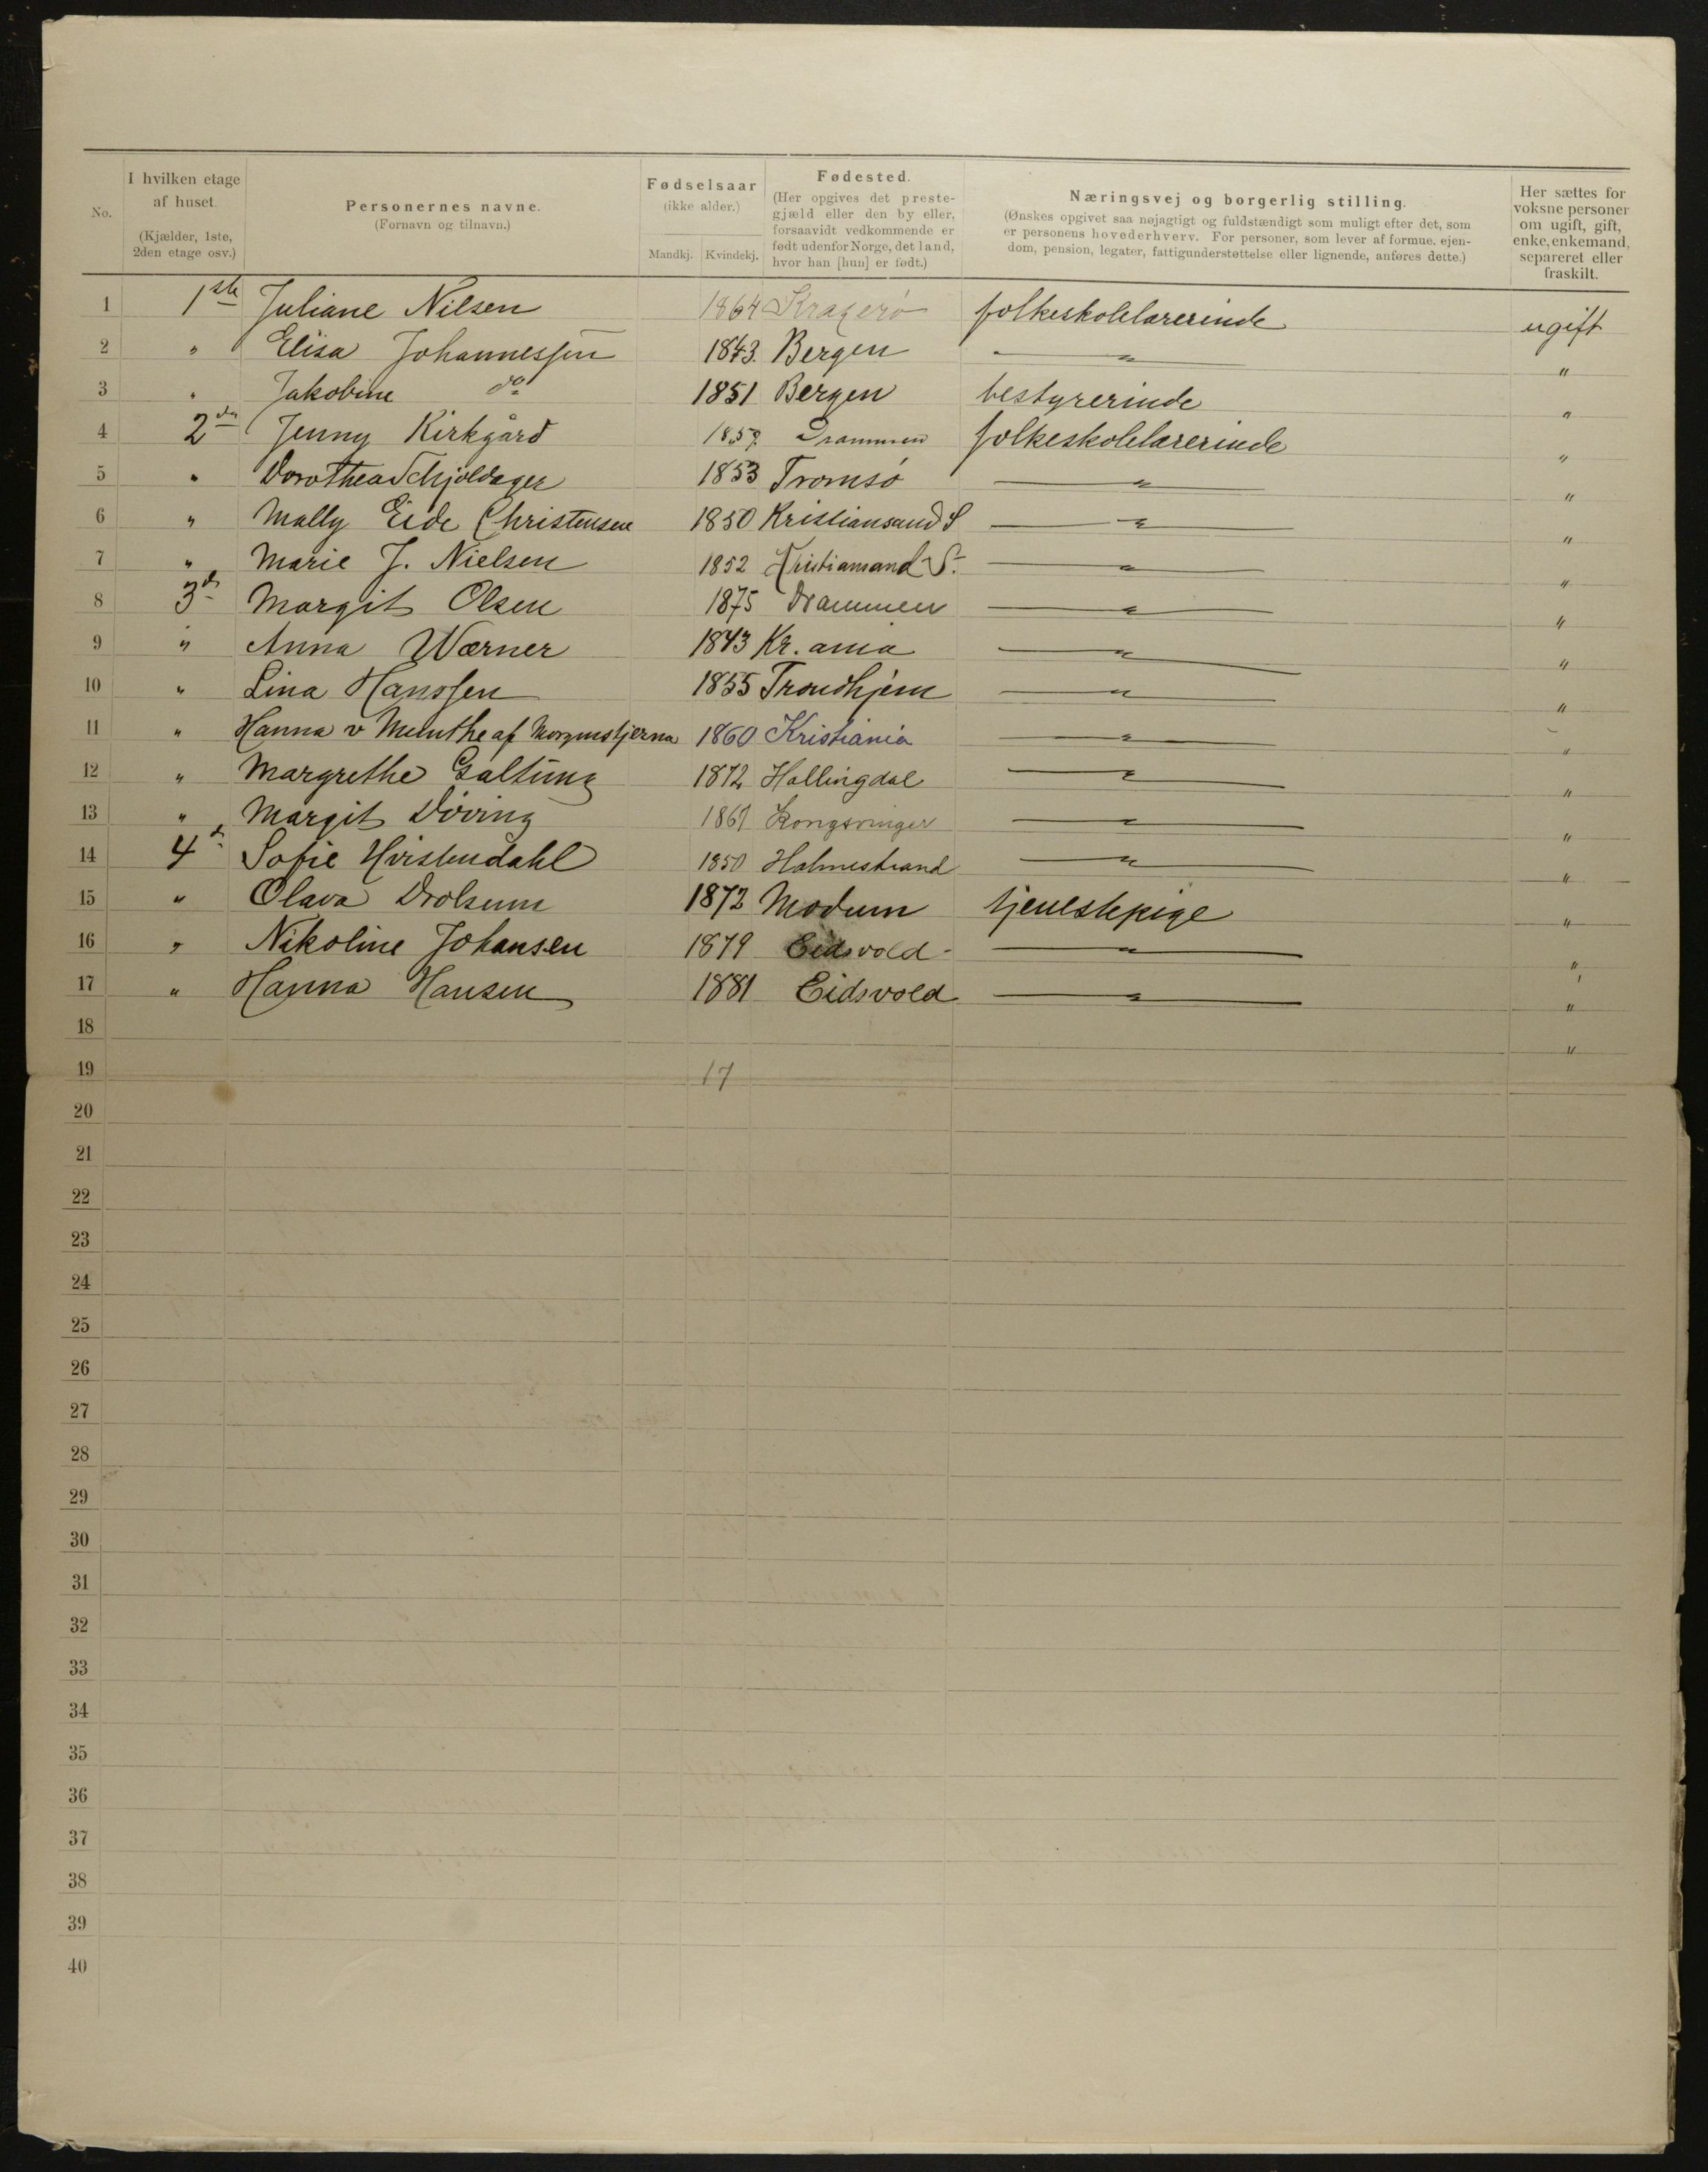 No.
I hvilken etage af huset. (Kjælder, 1ste, 2den etage osv.)
Personernes navne. (Fornavn og tilnavn.)
Fødselsaar (ikke alder.) Mandkj. Kvindekj.
Fødested. (Her opgives det prestegjæld eller den by eller, forsaavidt vedkommende er født udenfor Norge, det land, hvor han [hun] er født.)
Næringsvej og borgerlig stilling. (Ønskes opgivet saa nøjagtigt og fuldstændigt som muligt efter det, som er personens hovederhverv. For personer, som lever af formue, ejendom, pension, legater, fattigunderstøttelse eller lignende, anføres dette.)
Her sættes for voksne personer om ugift, gift, enke, enkemand, separeret eller fraskilt.
1 1ste Juliane Nilsen 1864 Kragerø folkeskolelærerinde ugift
2 " Elisa Johannessen 1843. Bergen " "
3 " Jakobine do 1851 Bergen bestyrerinde "
4 2den Jenny Kirkgård 1859 Drammen folkeskolelærerinde "
5 " Dorothea Schjoldager 1853 Tromsø " "
6 " Mally Eide Christensen 1850 Kristiansand S " "
7 " Marie J. Nielsen 1852 Kristiansand S. " "
8 3d Margit Olsen 1875 Drammen " "
9 " Anna Wærner 1843 Kr.ania " "
10 " Lina Hanssen 1855 Trondhjem " "
11 " Hanna v Munthe af Morgenstjerna 1860 Kristiania " "
12 " Margrethe Galtung 1872 Hallingdal " "
13 " Margit Døving 1867 Kongsvinger " "
14 4d Sofie Hvistendahl 1850 Holmestrand " "
15 " Olava Drolsum 1872 Modum tjenestepige "
16 " Nikoline Johansen 1879 Eidsvold " "
17 " Hanna Hansen 1881 Eidsvold " "
18 "
19 17
20
21
22
23
24
25
26
27
28
29
30
31
32
33
34
35
36
37
38
39
40